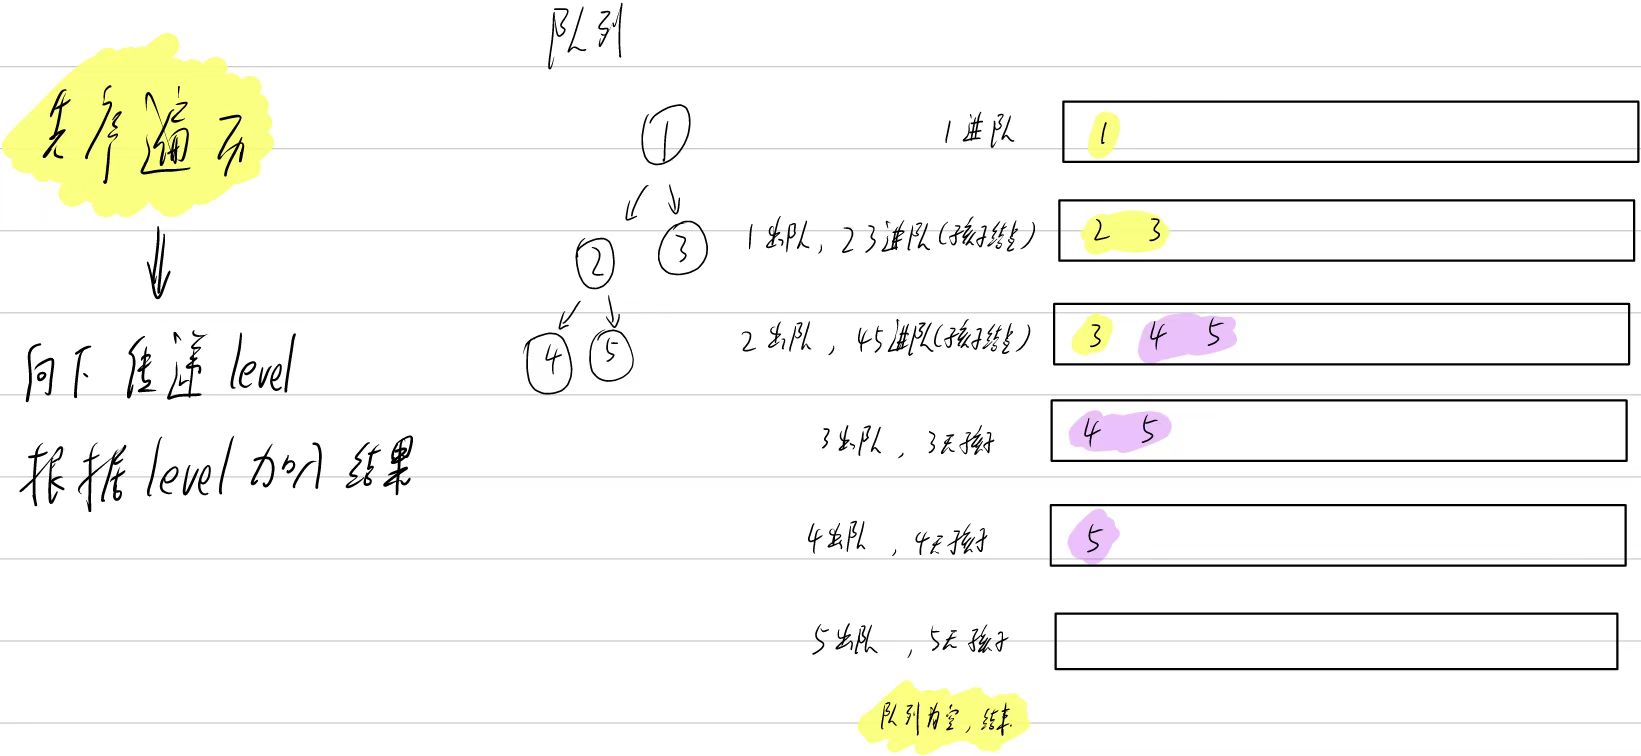 队列
先序遍历
向下传递level
根据level加入结果
1
2
3
4
5
1进队
1
1出队，23进队(孩子结点)
2 3
2出队，45进队(孩子结点)
3 4 5
3出队，3无孩子
4 5
4出队，4无孩子
5
5出队，5无孩子
队列为空，结束.